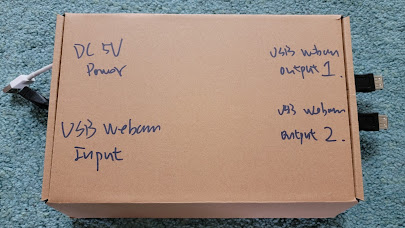 DC 5V
Power
USB webcam
Input
USB webcam
output 1.
USB webcam
output 2.